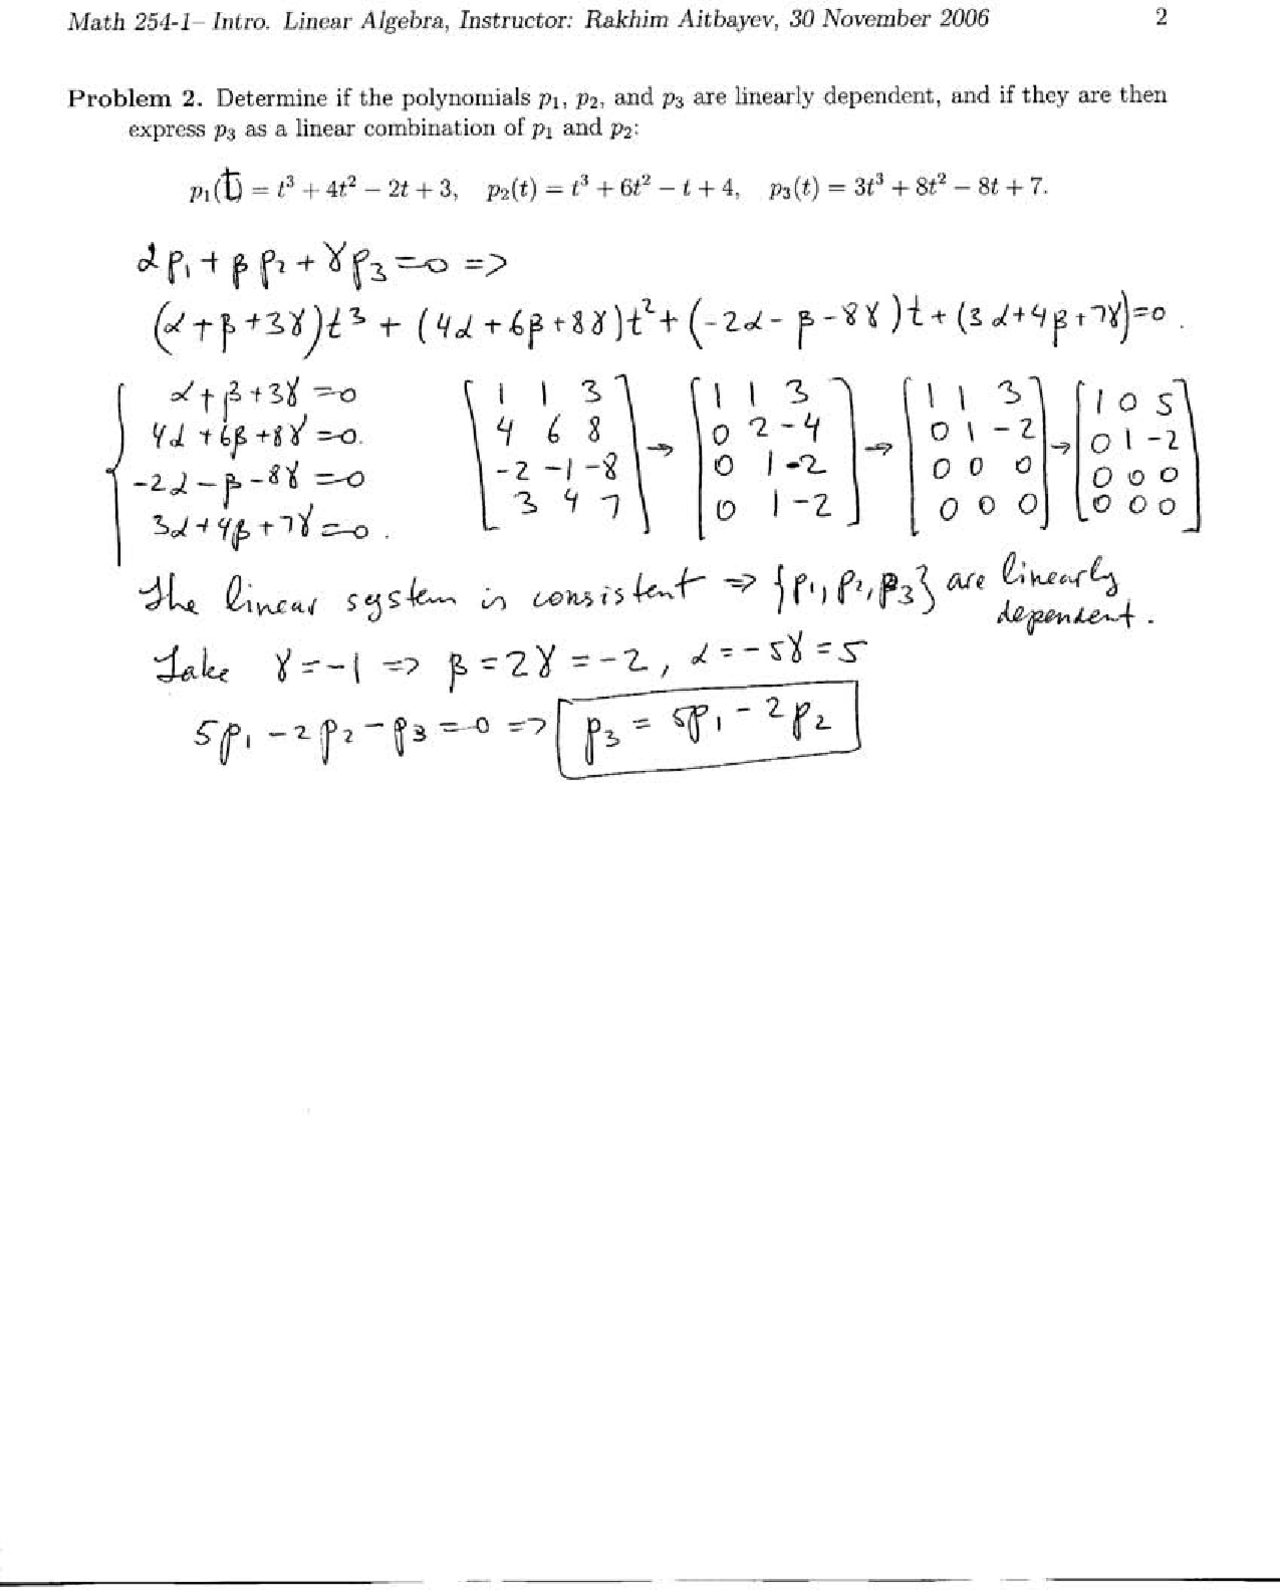 Math 254-1– Intro. Linear Algebra, Instructor: Rakhim Aitbayev, 30 November 2006 2
Problem 2. Determine if the polynomials p₁, p₂, and p₃ are linearly dependent, and if they are then
express p₃ as a linear combination of p₁ and p₂:
p₁(t) = t³ + 4t² − 2t + 3, p₂(t) = t³ + 6t² − t + 4, p₃(t) = 3t³ + 8t² − 8t + 7.
αp₁ + βp₂ + γp₃ = 0 =>
(α+β+3γ)t³ + (4α+6β+8γ)t² + (-2α-β-8γ)t + (3α+4β+7γ)=0.
α+β+3γ=0
4α+6β+8γ=0.
-2α-β-8γ=0
3α+4β+7γ=0.
[1 1 3
4 6 8
-2 -1 -8
3 4 7]
→
[1 1 3
0 2 -4
0 1 -2
0 1 -2]
→
[1 1 3
0 1 -2
0 0 0
0 0 0]
→
[1 0 5
0 1 -2
0 0 0
0 0 0]
The linear system is consistent => {p₁, p₂, p₃} are linearly
dependent.
Take γ=-1 => β=2γ=-2, α=-5γ=5
5p₁-2p₂-p₃=0 => p₃ = 5p₁-2p₂